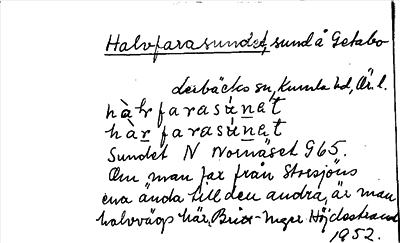 Halvfarasundet, sund å Getabo
Lerbäcks sn, Kumla hd, Ör. l.
hàḷv̥farasúṇet
hàṟ farasúṇet
Sundet N Nornäset 965.
Om man far från Storsjöns
ena ända till den andra, är man
halvvägs här. Britt-Inger Höjdestrand
1952.